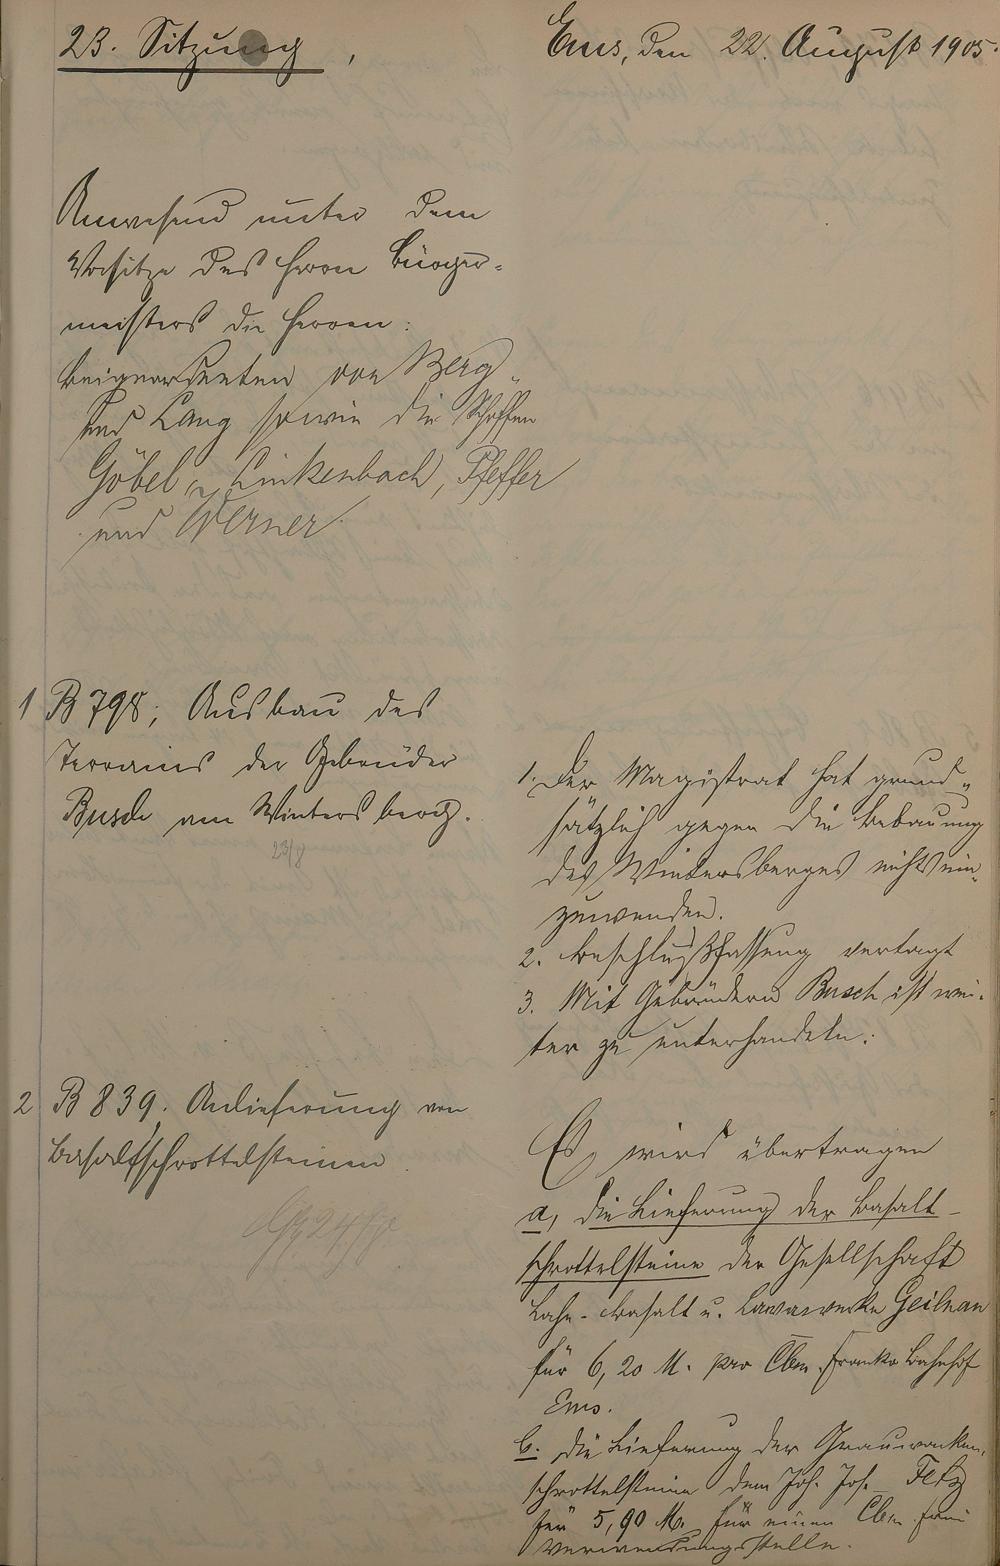 23. Sitzung,
Ems, den 22. August 1905.
Anwesend unter dem
Vorsitze des Herrn Bürger-
meisters die Herren:
Beigeordneten von Berg
und Lang sowie die Schöffen
Göbel, Linkenbach, Pfeffer
und Werner.
1 B 798; Ausbau des
Terrains der Gebrüder
Busch am Wintersberg.
23/8
1. Der Magistrat hat grund-
sätzlich gegen die Bebauung
des Wintersberges nichts ein-
zuwenden.
2. Beschlußfassung vertagt
3. Mit Gebrüdern Busch ist wei-
ter zu unterhandeln.
2 B 839. Anlieferung von
Basaltschrottelsteinen
24/8
Es wird übertragen
a, die Lieferung der Basalt-
schrottelsteine der Gesellschaft
Lahn-Basalt u. Lavawerke Geilnau
für 6,20 M. pro Cbm. franko Bahnhof
Ems.
b. die Lieferung der Grauwacken-
schrottelsteine dem Joh. Jos. Fetz
für 5,90 M. für einen Cbm. frei
Verwendungsstelle.